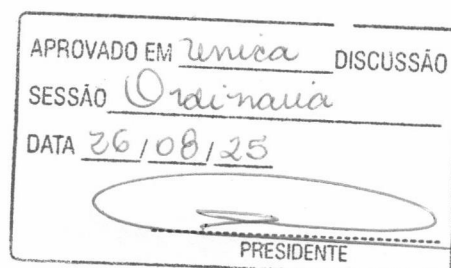 APROVADO EM Unica DISCUSSÃO
SESSÃO Ordinaria
DATA 26/08/25
PRESIDENTE